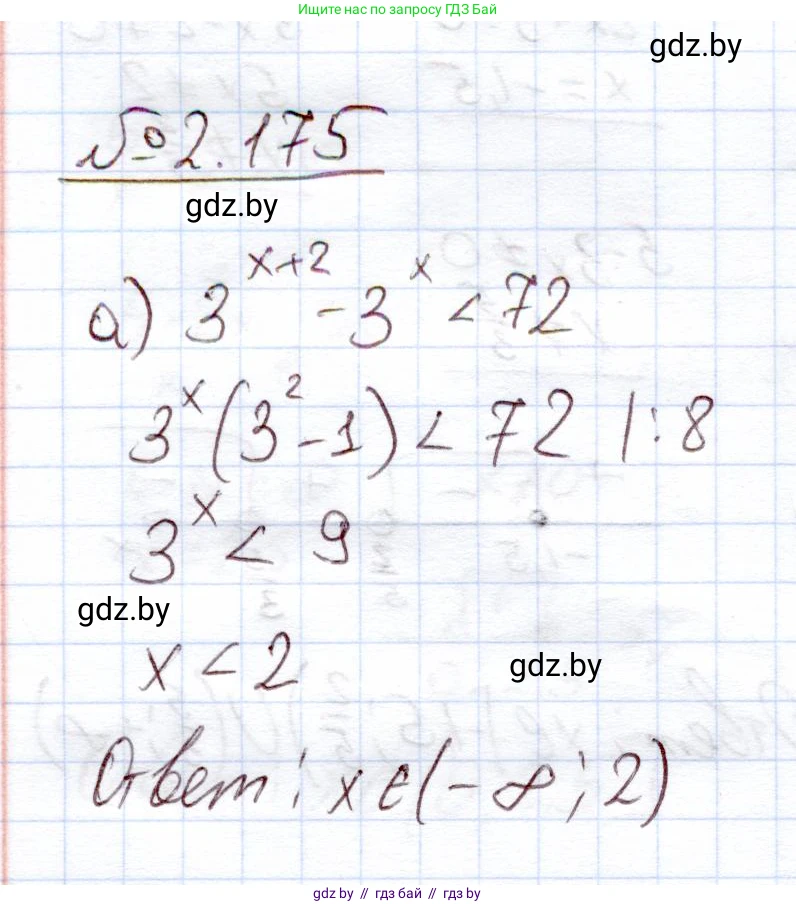 Ищите нас по запросу ГДЗ Бай
gdz.by
№2.175
gdz.by
а) 3^{x+2} - 3^x < 72
3^x (3^2 - 1) < 72 | : 8
3^x < 9
gdz.by
x < 2
gdz.by
Ответ: x ∈ (-∞; 2)
gdz.by // гдз бай // gdz.by